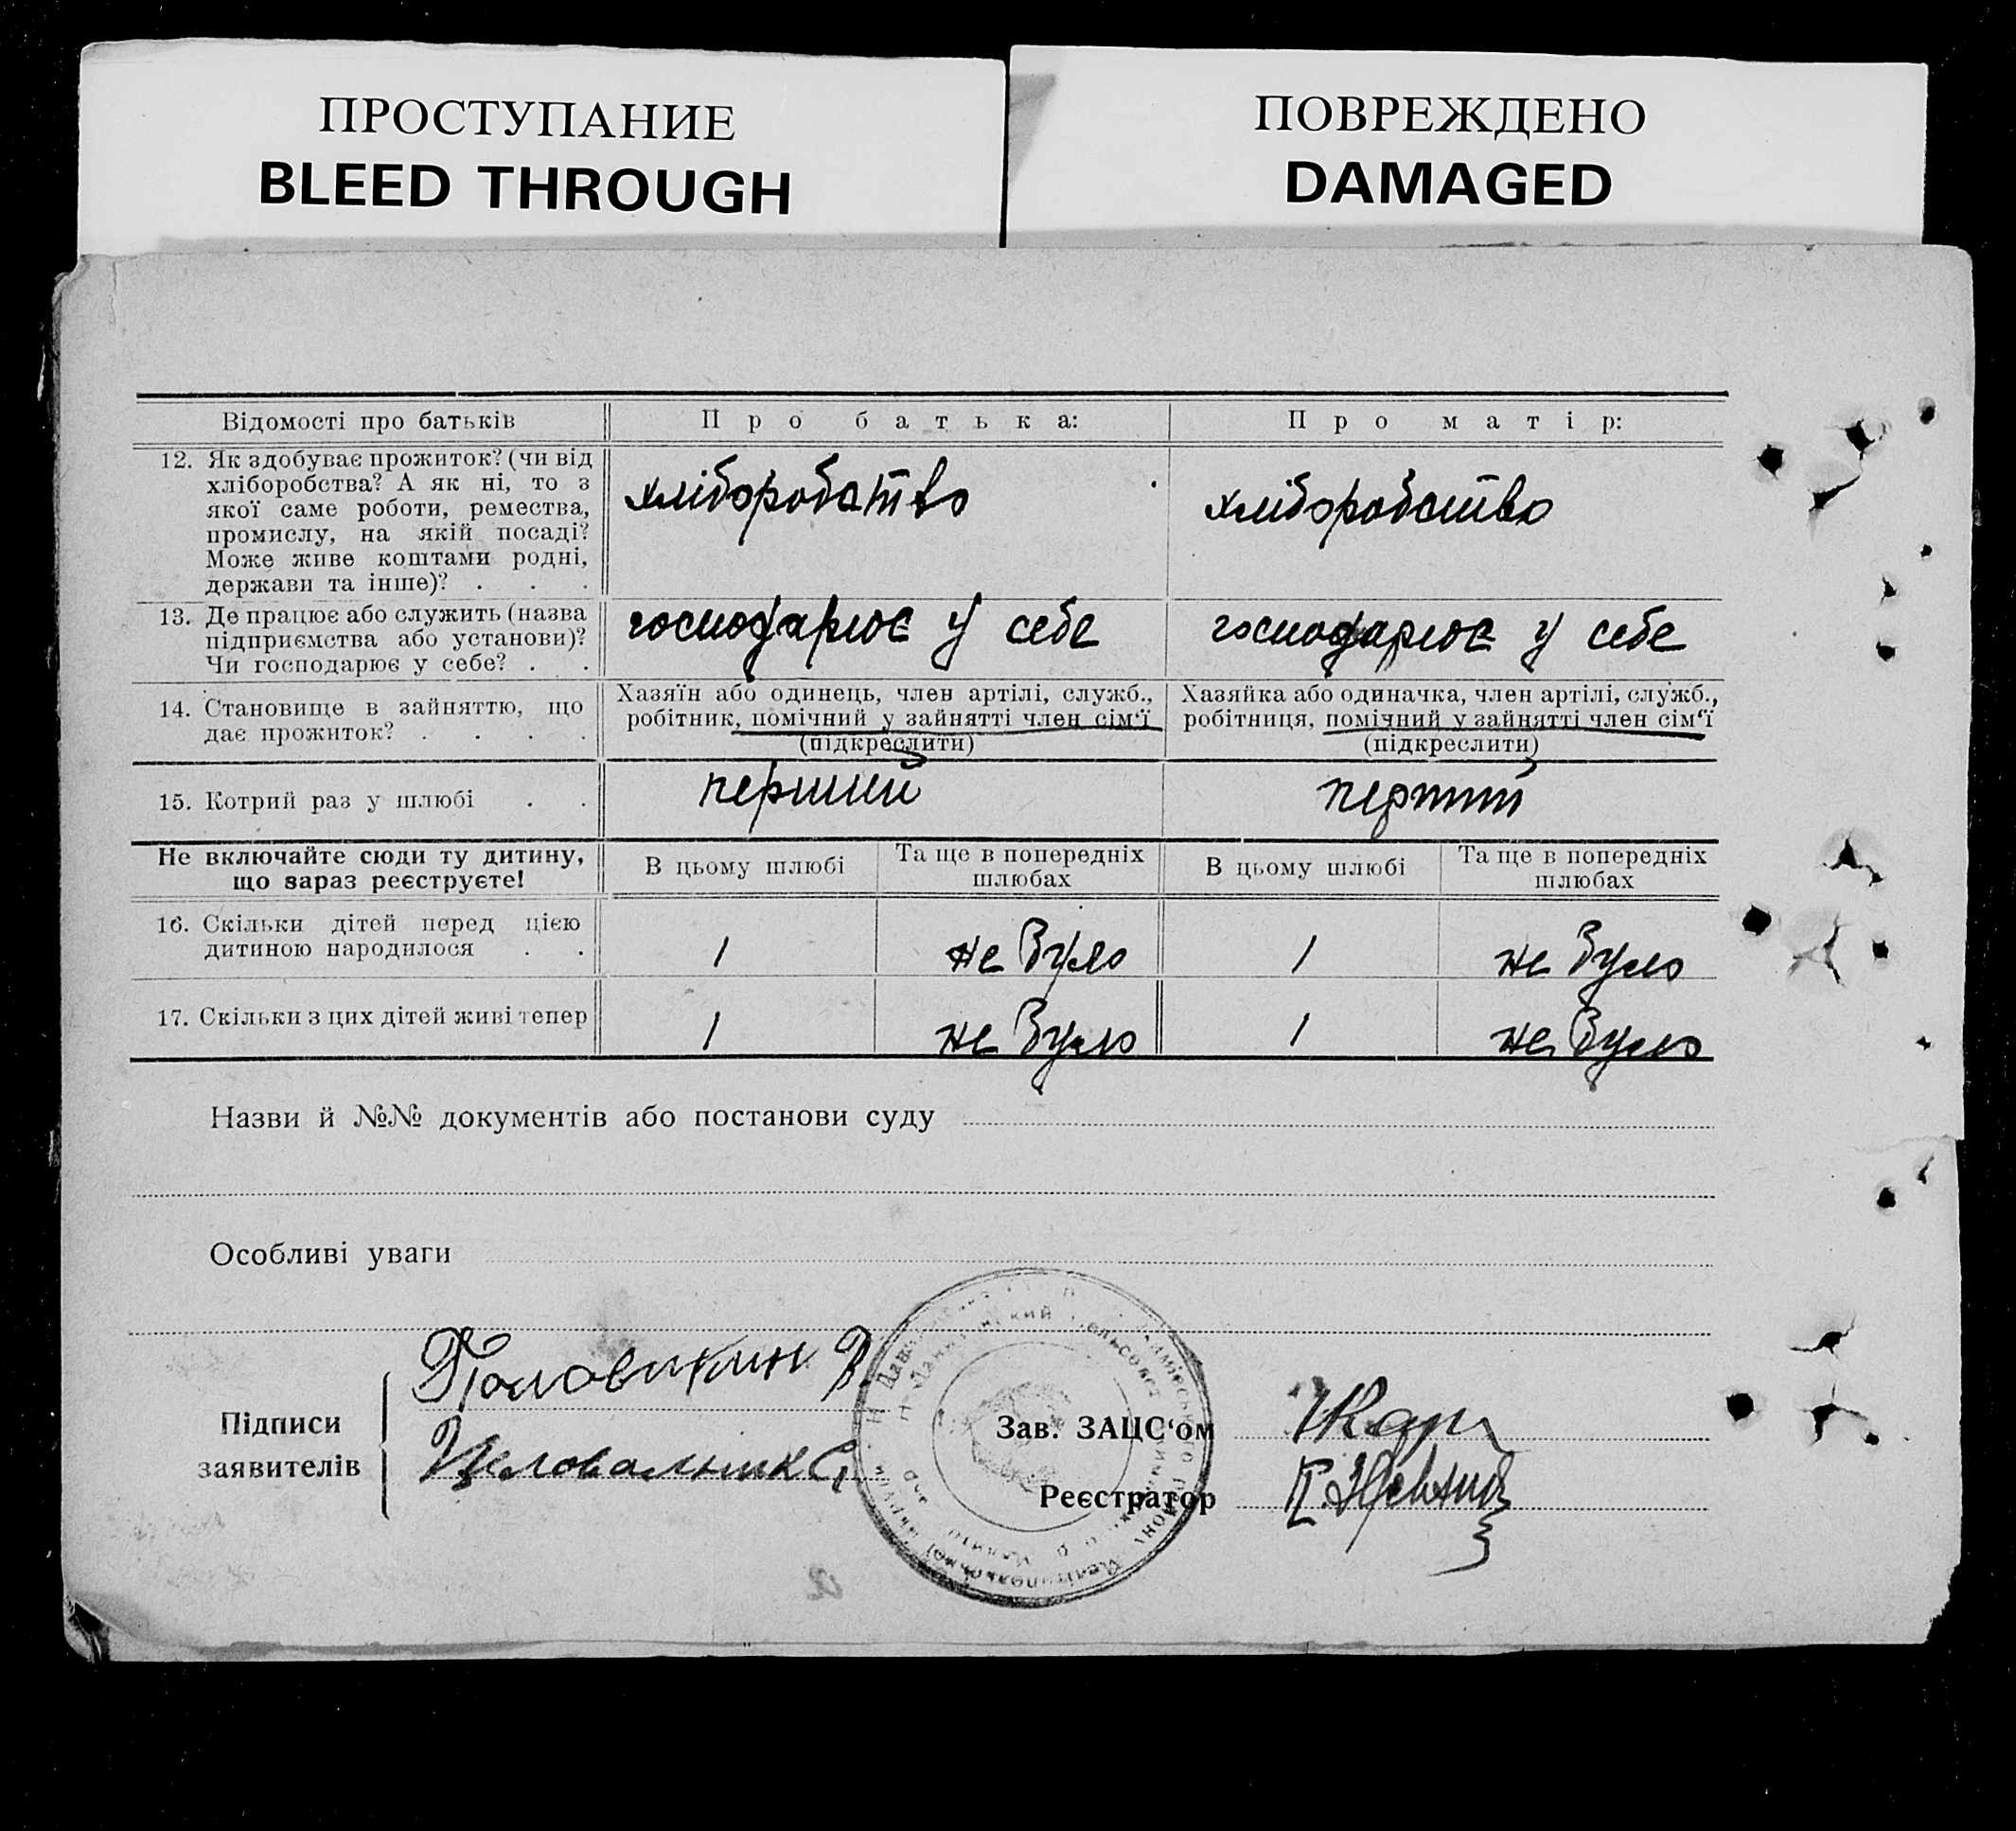 ПРОСТУПАНИЕ
BLEED THROUGH
ПОВРЕЖДЕНО
DAMAGED
Відомості про батьків
Про батька:
Про матір:
12. Як здобуває прожиток? (чи від
хліборобства? А як ні, то з
якої саме роботи, ремества,
промислу, на якій посаді?
Може живе коштами родні,
держави та інше)? . . .
хліборобство
хліборобство
13. Де працює або служить (назва
підприємства або установи)?
Чи господарює у себе? . .
господарює у себе
господарює у себе
14. Становище в зайняттю, що
дає прожиток? . . . .
Хазяїн або одинець, член артілі, служб.,
робітник, помічний у зайнятті член сім'ї
(підкреслити)
Хазяйка або одиначка, член артілі, служб.,
робітниця, помічний у зайнятті член сім'ї
(підкреслити)
15. Котрий раз у шлюбі . .
перший
перший
Не включайте сюди ту дитину,
що зараз реєструєте!
В цьому шлюбі
Та ще в попередніх
шлюбах
В цьому шлюбі
Та ще в попередніх
шлюбах
16. Скільки дітей перед цією
дитиною народилося . .
1
не було
1
не було
17. Скільки з цих дітей живі тепер
1
не було
1
не було
Назви й №№ документів або постанови суду
Особливі уваги
Підписи
заявителів
Зав. ЗАЦС'ом
Реєстратор